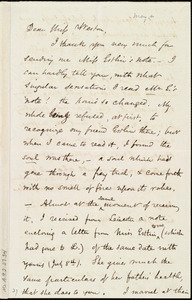 Dear Miss Weston,
I thank you very much for
sending me Miss Estlin's note. — I
can hardly tell you with what
singular sensations I read Mr. E's
note! the hand so changed. My
whole being refused, at first, to
recognise my friend Estlin there; but
when I came to read it, I found the
soul was there, — a soul which had
gone through a fiery trial, & come forth
with no smell of fire upon its robes.
— Almost at the same moment of receiving
it, I received from Leicester a note
enclosing a letter from Miss Estlin (which
had gone to L.) of the same date with
yours (July 8th). She gives much the
same particulars of her father's health,
that she does to you. I marvel at the